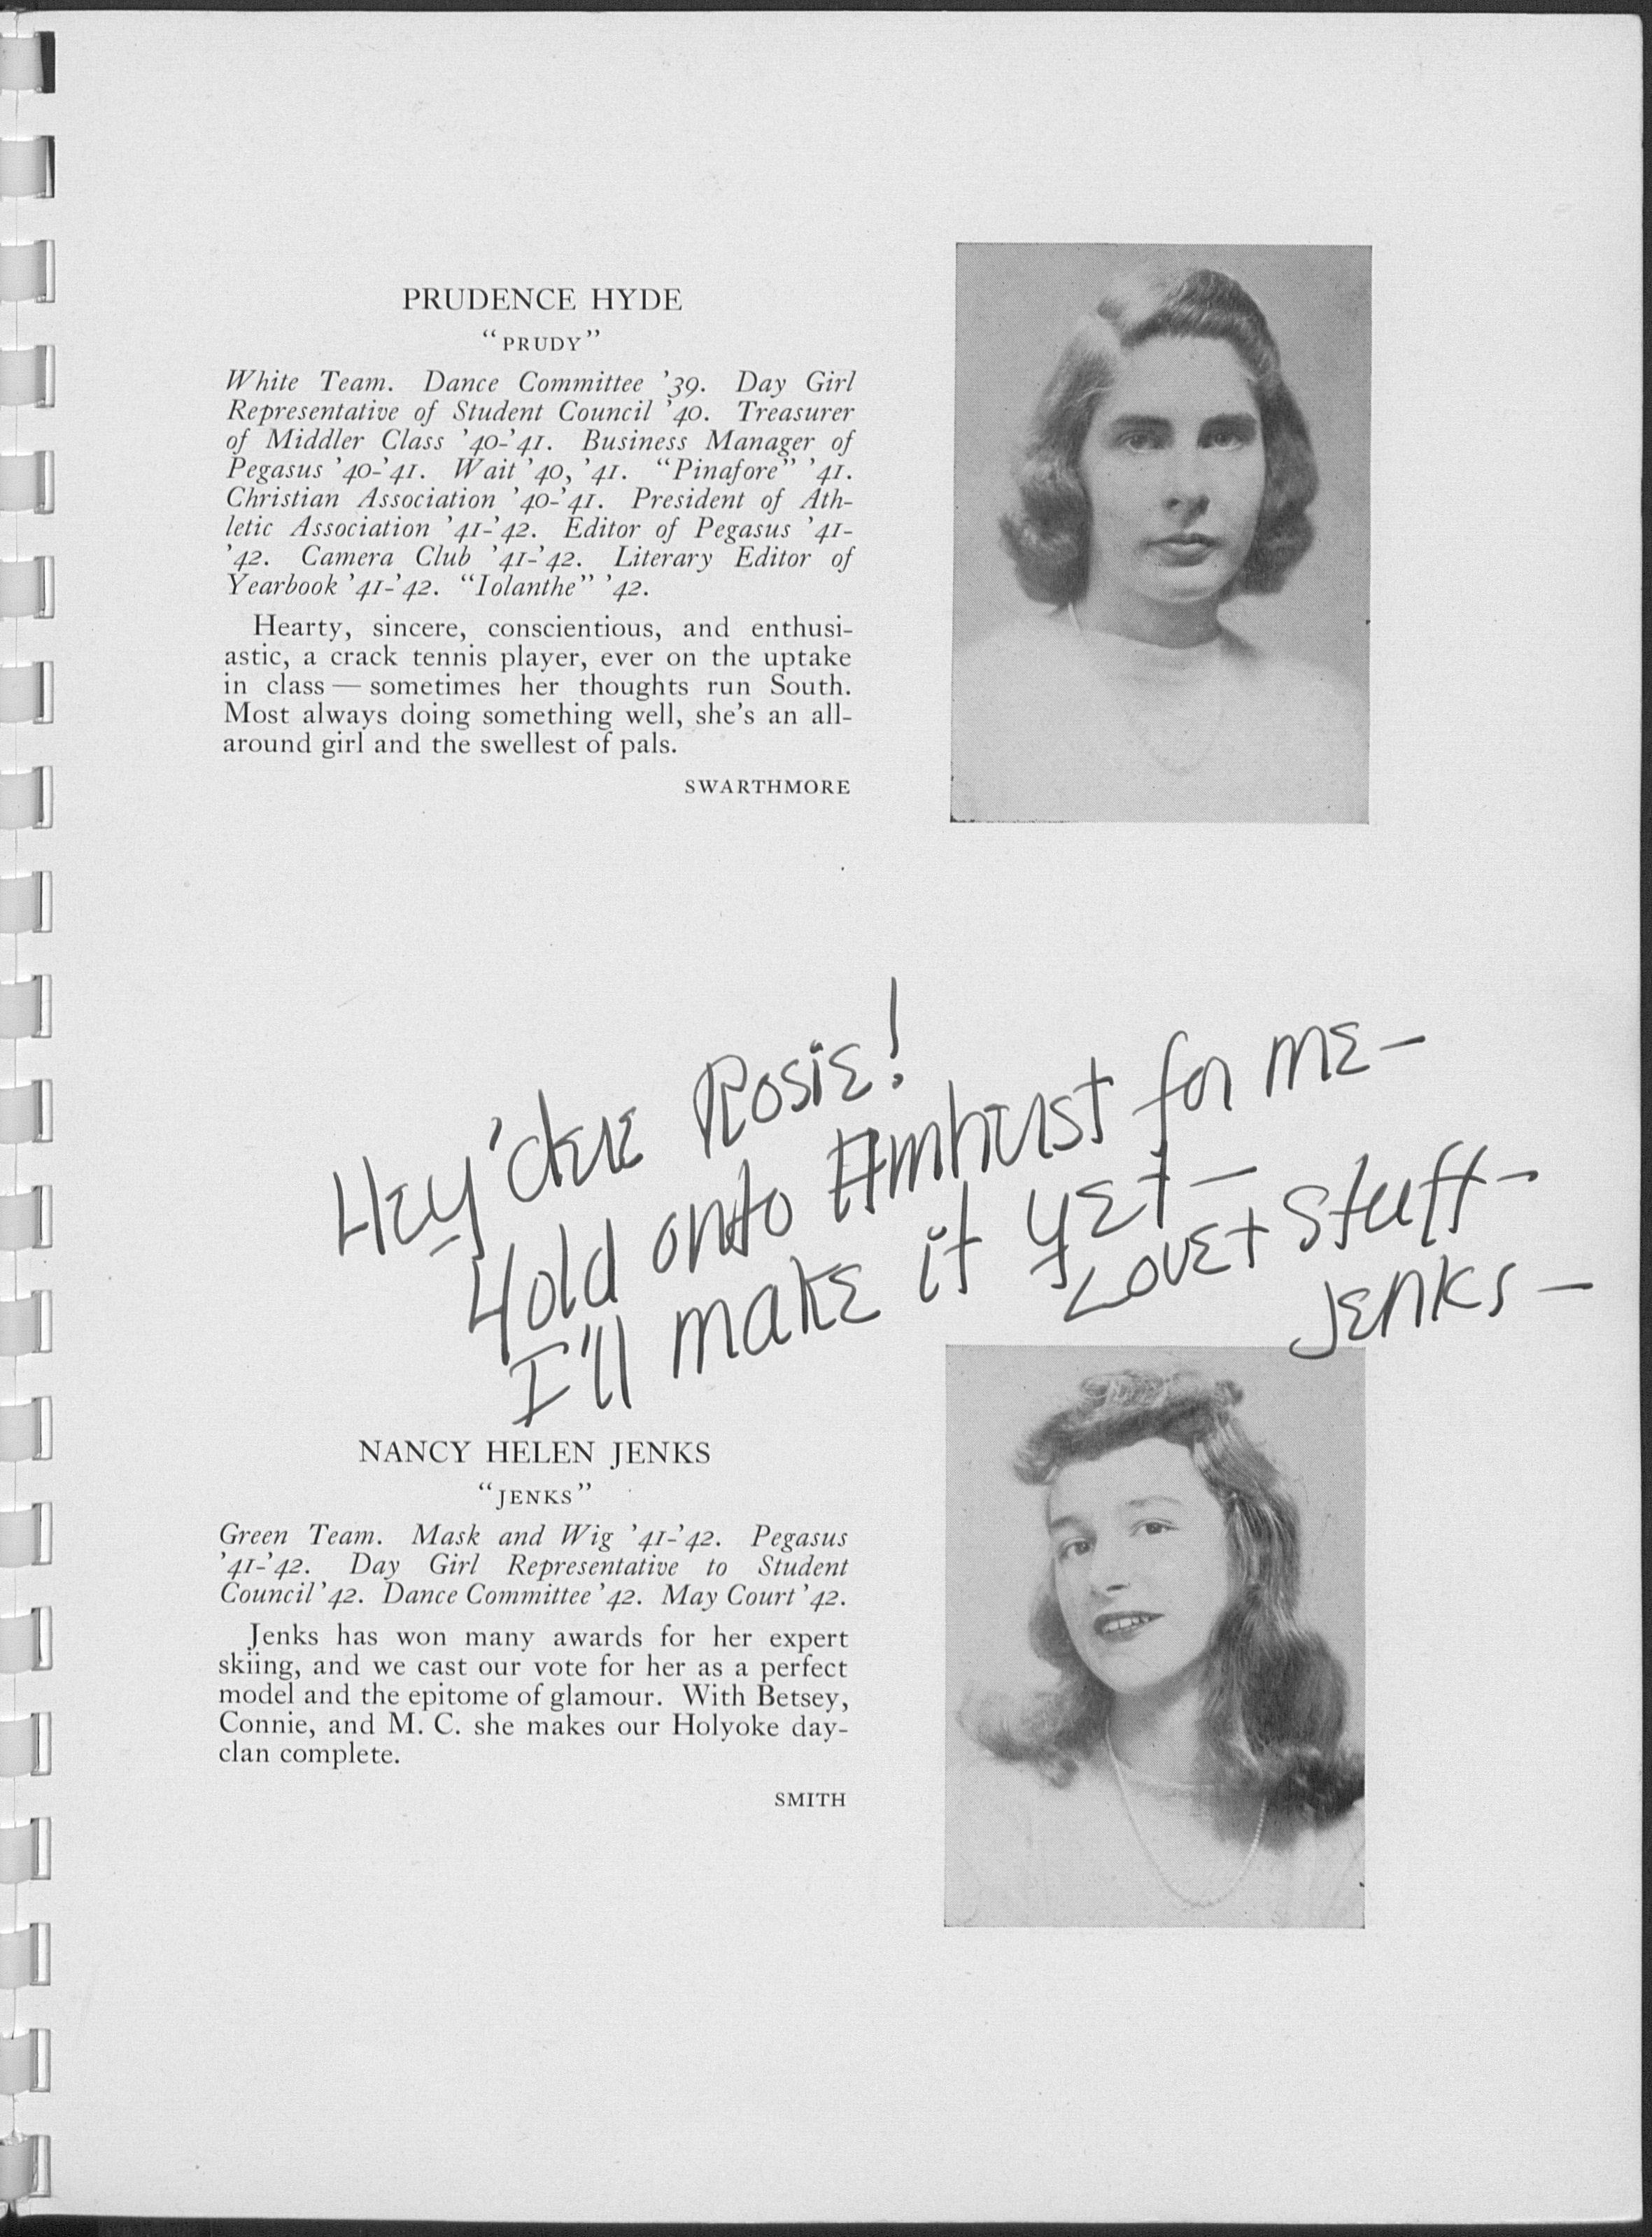 PRUDENCE HYDE
“PRUDY”
White Team. Dance Committee ’39. Day Girl
Representative of Student Council ’40. Treasurer
of Middler Class ’40-’41. Business Manager of
Pegasus ’40-’41. Wait ’40, ’41. “Pinafore” ’41.
Christian Association ’40-’41. President of Ath-
letic Association ’41-’42. Editor of Pegasus ’41-
’42. Camera Club ’41-’42. Literary Editor of
Yearbook ’41-’42. “Iolanthe” ’42.
Hearty, sincere, conscientious, and enthusi-
astic, a crack tennis player, ever on the uptake
in class — sometimes her thoughts run South.
Most always doing something well, she’s an all-
around girl and the swellest of pals.
SWARTHMORE
Hey 'dere Rosie!
Hold onto Amherst for me —
I'll make it yet —
Love + Stuff —
Jenks —
NANCY HELEN JENKS
“JENKS”
Green Team. Mask and Wig ’41-’42. Pegasus
’41-’42. Day Girl Representative to Student
Council ’42. Dance Committee ’42. May Court ’42.
Jenks has won many awards for her expert
skiing, and we cast our vote for her as a perfect
model and the epitome of glamour. With Betsey,
Connie, and M. C. she makes our Holyoke day-
clan complete.
SMITH